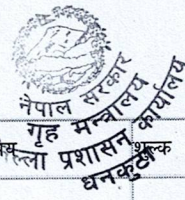 नेपाल सरकार
गृह मन्त्रालय
ल्ला प्रशासन कार्यालय
धनकुटा
शुल्क